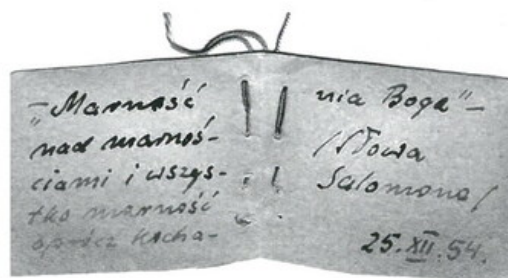 – „Marność
nad marnoś-
ciami i wszys-
tko marność
oprócz kocha-
nia Boga” –
/Słowa
Salomona/
25.XII.54.